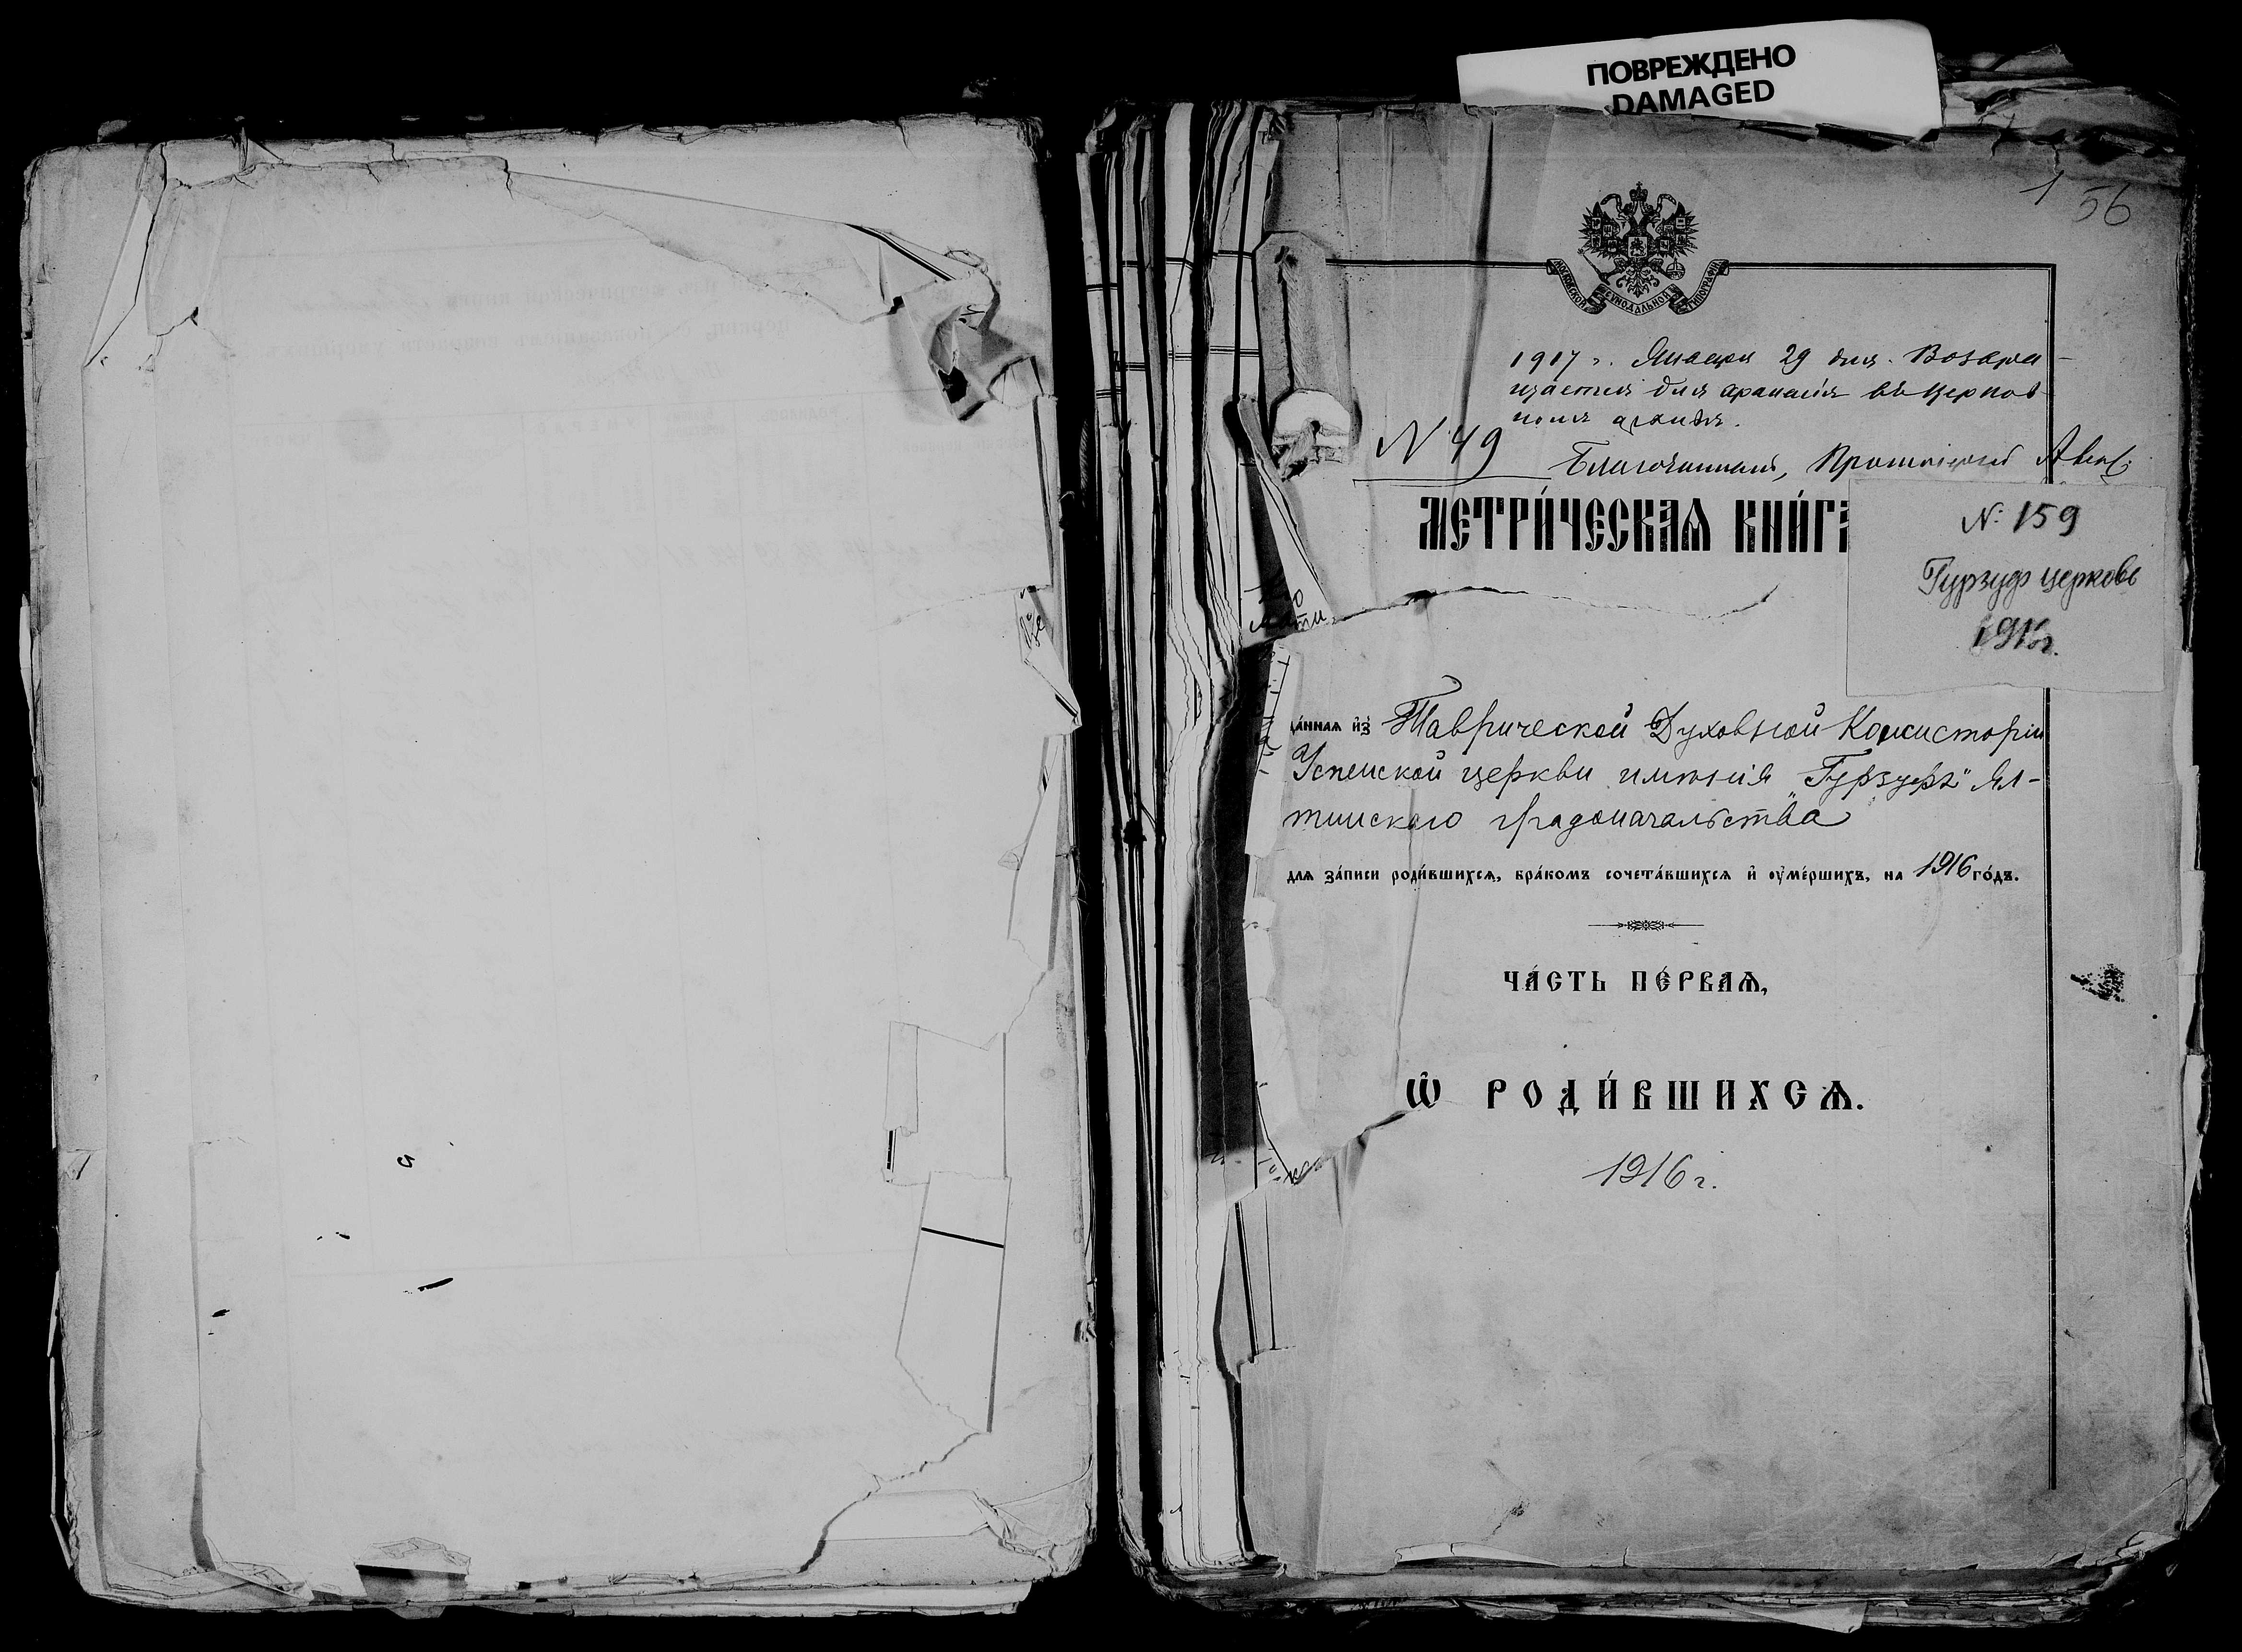 ПОВРЕЖДЕНО
DAMAGED
1 56
МОСКОВСКОЙ СѴНОДАЛЬНОЙ ТИПОГРАФІИ
1917 г. Января 29 дня. Возвра-
щается для храненія въ церков
номъ архивѣ.
N 49
Благочинный, Протоіерей
МЕТРИ́ЧЕСКАѦ КНИ́ГА
№ 159
Гурзуф церковь
1916г.
да́ннаѧ и҆з̾ Таврической Духовной Консисторіи
Успенской церкви имѣнія „Гурзуфъ" Ял-
тинскаго градоначальства
длѧ за́писи роди́вшихсѧ, бра́комъ сочета́вшихсѧ и҆ ᲂу҆ме́ршихъ, на 1916 го́дъ.
ЧА́СТЬ ПЕ́РВАѦ,
Ѽ РОДИ́ВШИХСѦ.
1916 г.